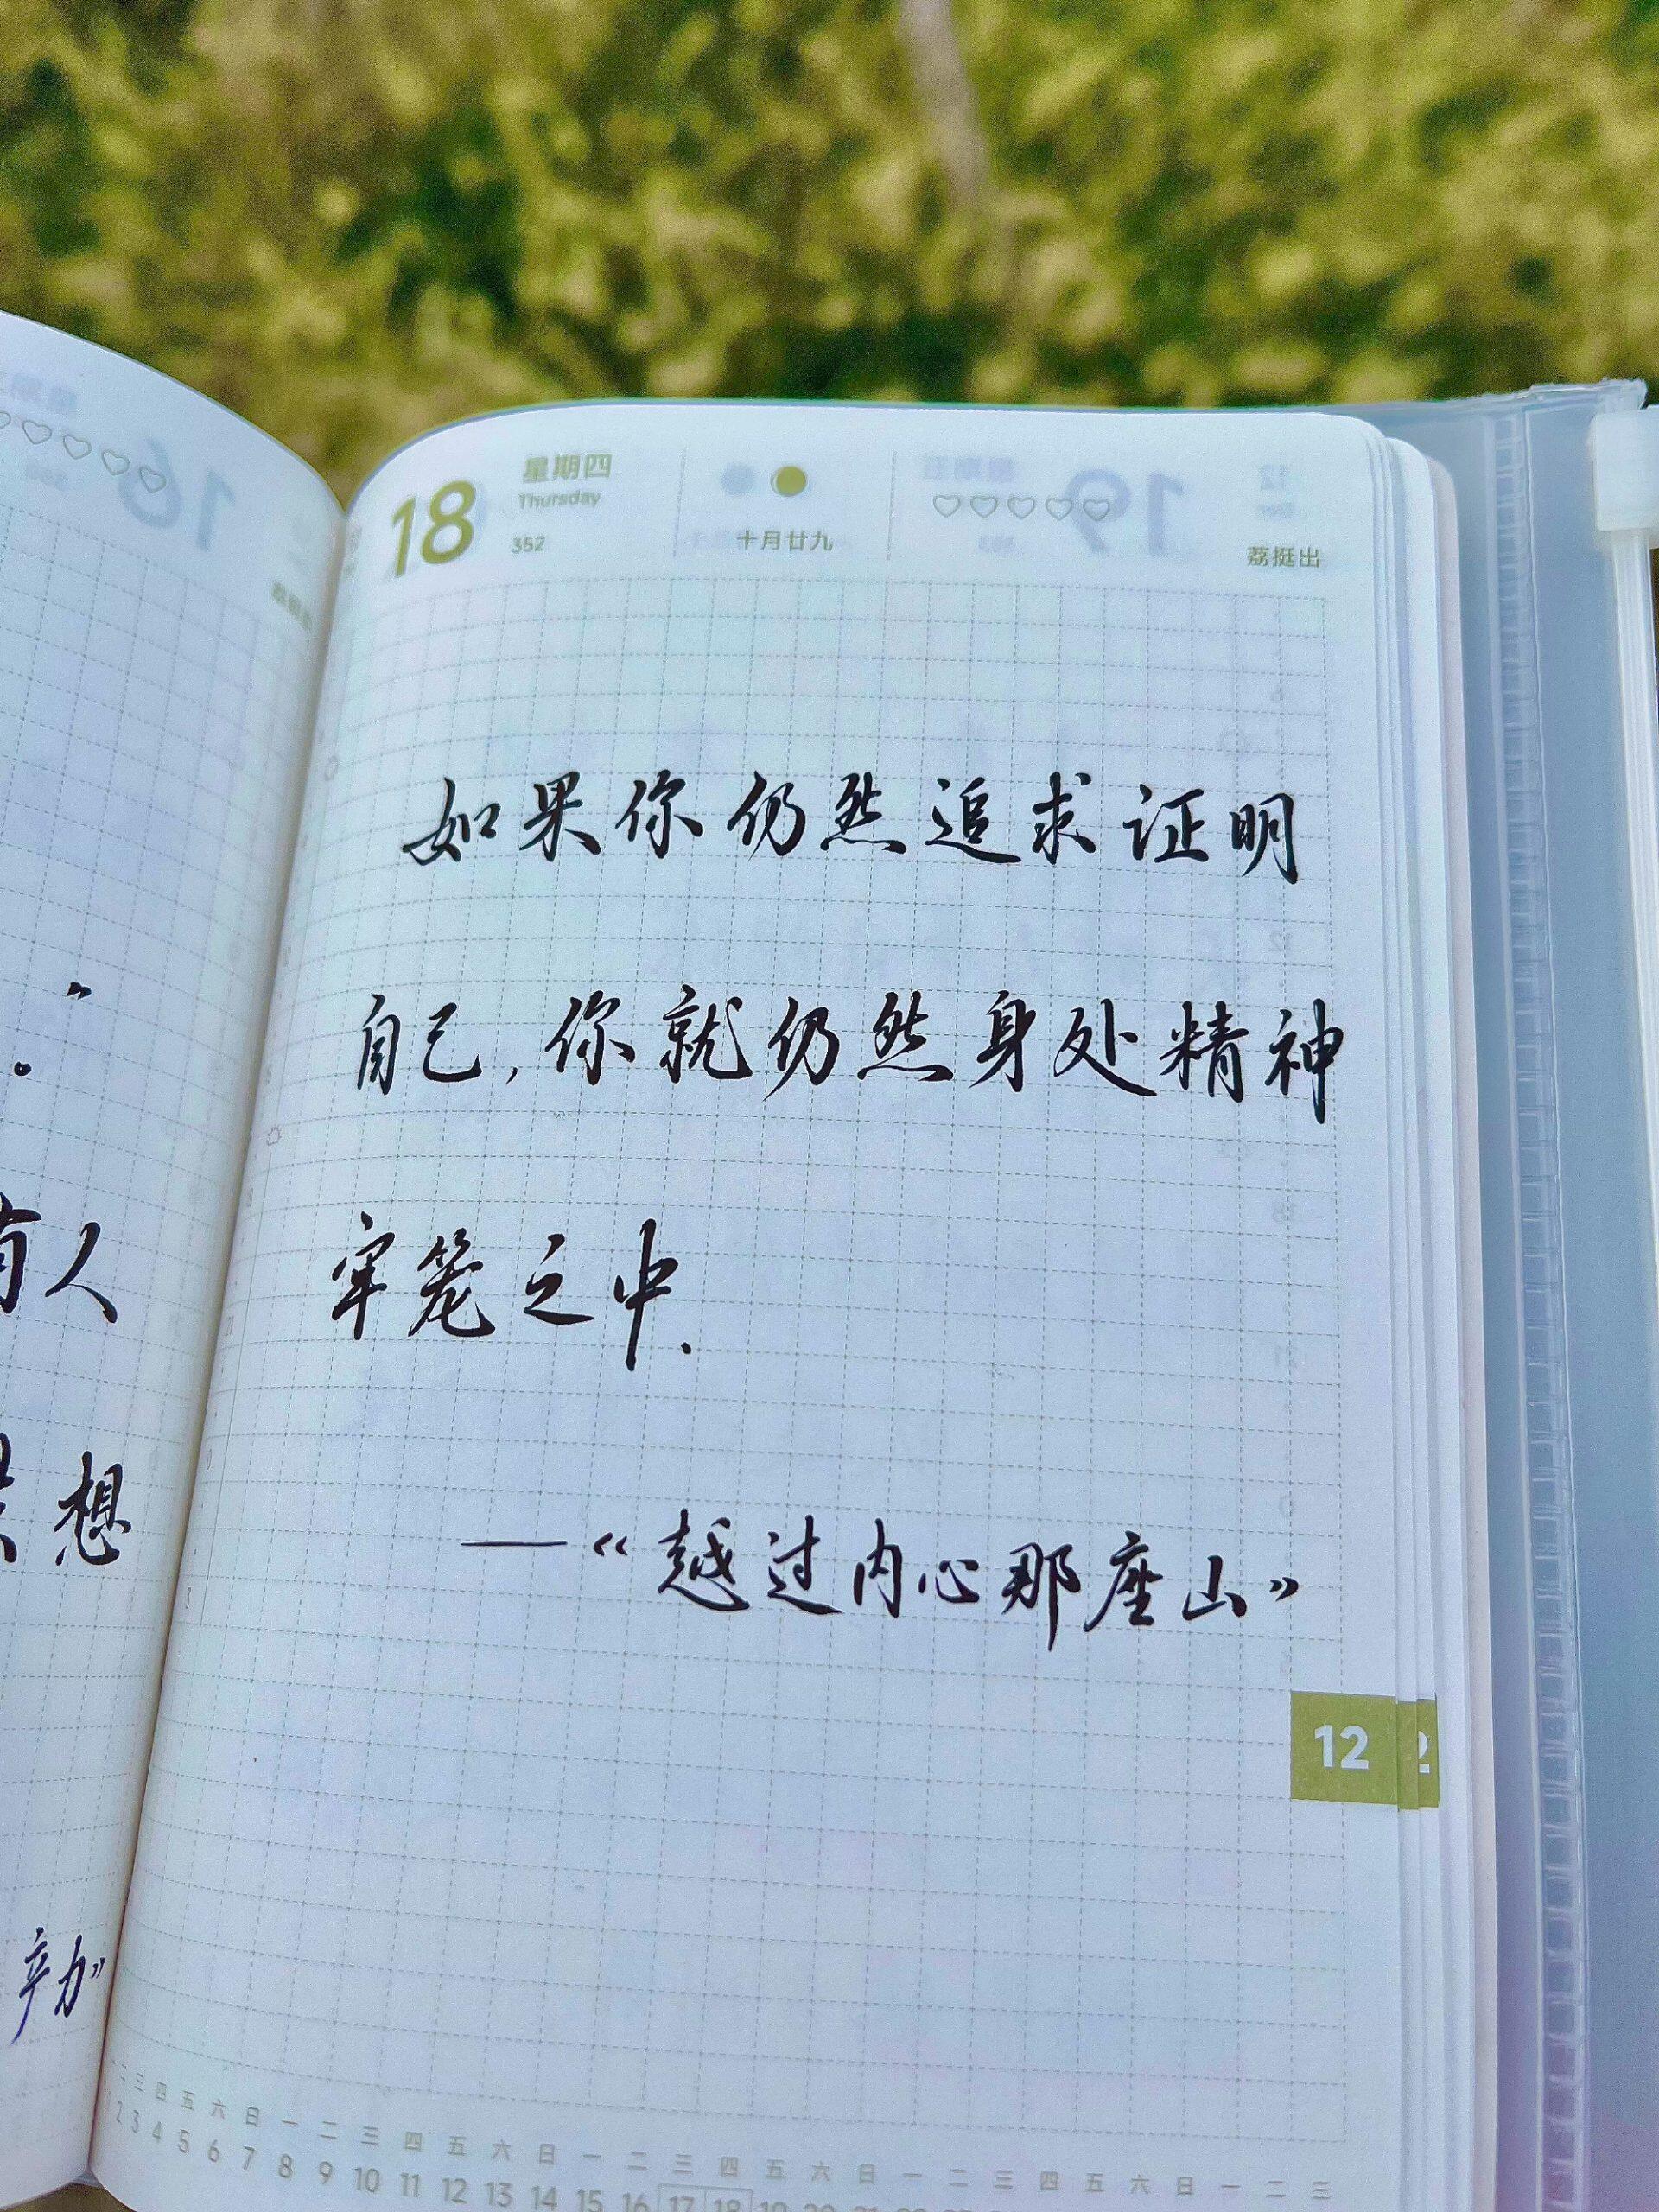 。”
有人
想
力》
18
星期四
Thursday
352
十月廿九
荔挺出
如果你仍然追求证明
自己,你就仍然身处精神
牢笼之中.
—《越过内心那座山》
12
2
二 三 四 五 六 日 一 二 三 四 五 六 日 一 二 三 四 五 六 日 一 二 三 四 五 六 日 一 二 三
2 3 4 5 6 7 8 9 10 11 12 13 14 15 16 17 18 19 20